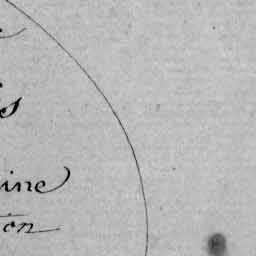 s
ine
ion